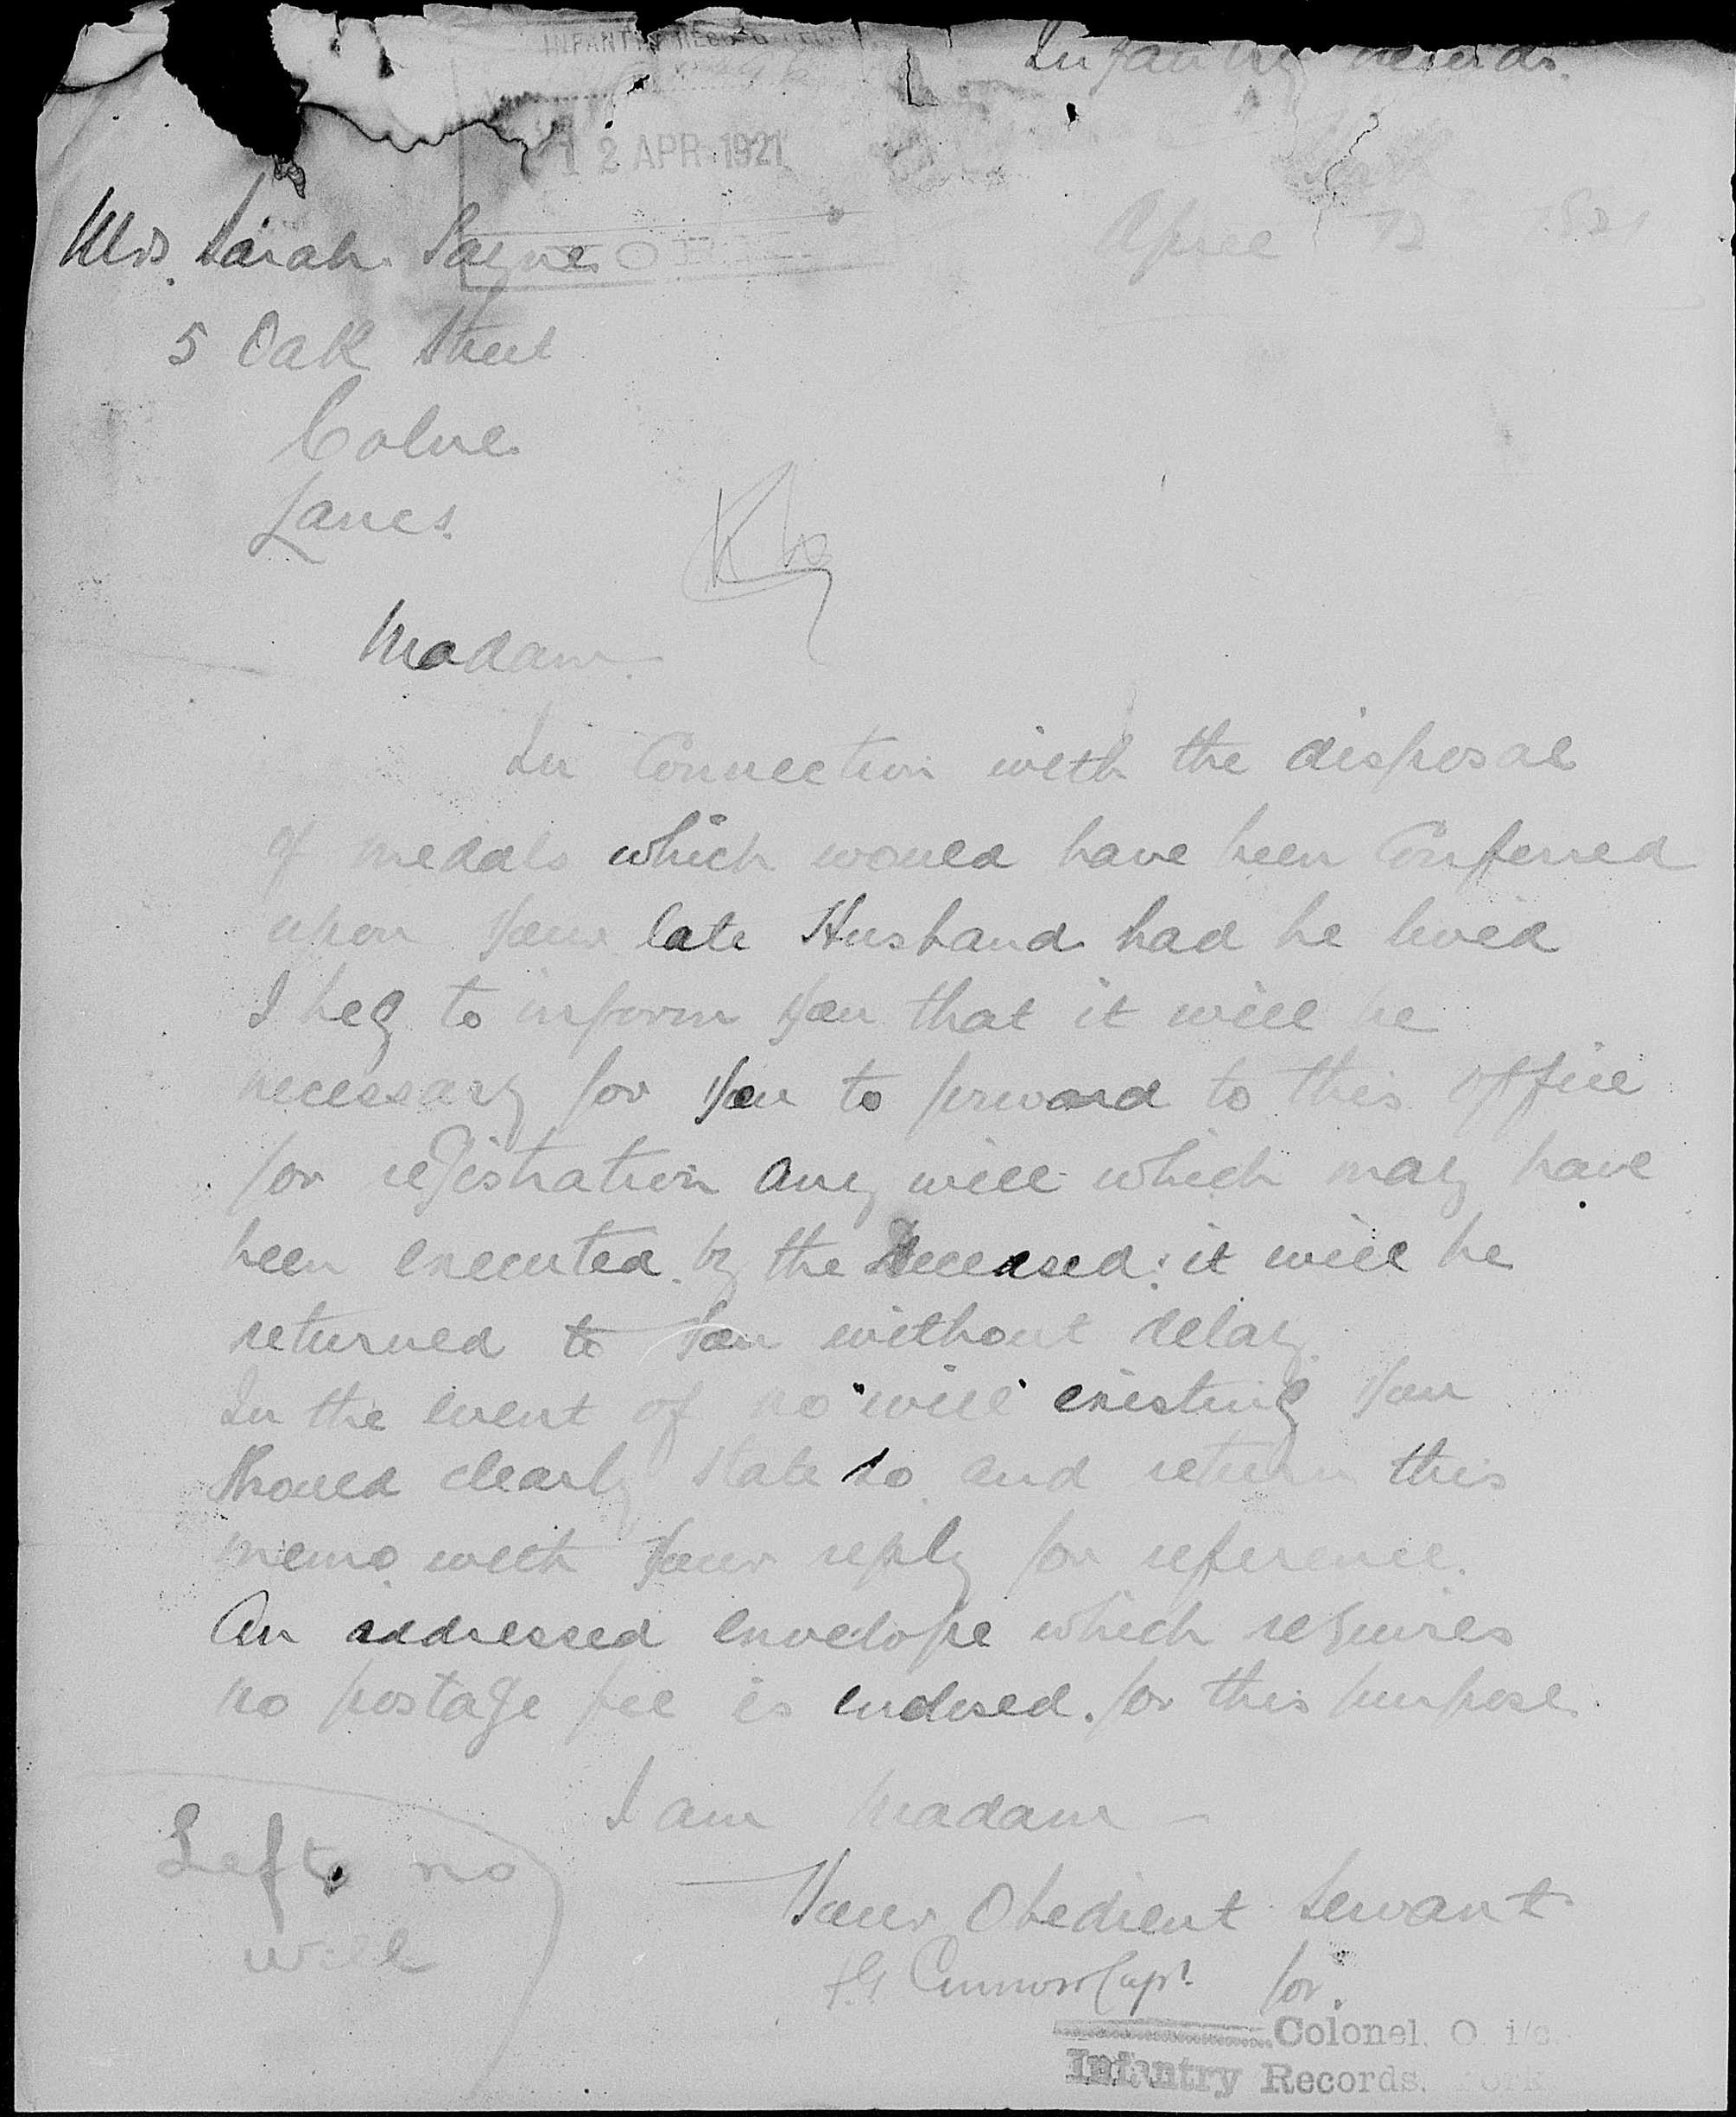 INFANTRY RECORD
Infantry Records.
12 APR 1921
April 12 1921
Mrs. Sarah Payne
5 Oak Street
Colne
Lancs.
Madam
In Connection with the disposal
of medals which would have been Conferred
upon your late Husband had he lived
I beg to inform you that it will be
necessary for you to forward to this office
for registration any will which may have
been executed by the Deceased: it will be
returned to you without delay.
In the event of no "will" existing you
should clearly state so and return this
memo with your reply for reference.
An addressed envelope which requires
no postage fee is enclosed for this purpose.
I am Madam
Your Obedient Servant
Capt. for
Colonel. O. i/c.
Infantry Records. York
Left no
will